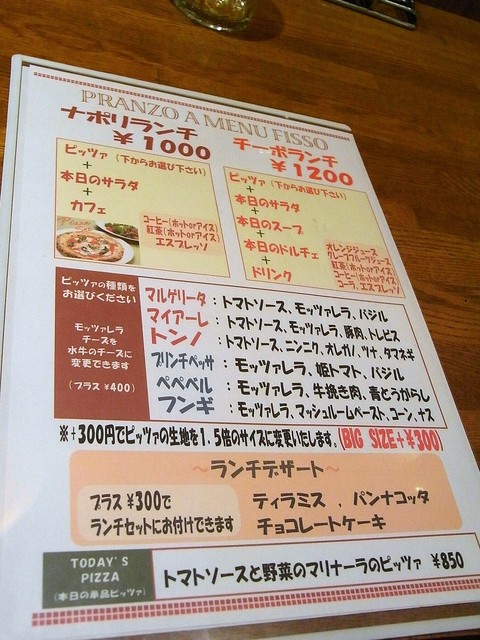 PRANZO A MENU FISSO
ナポリランチ
¥1000
ピッツァ (下からお選び下さい)
+
本日のサラダ
+
カフェ
コーヒー(ホットorアイス)
紅茶(ホットorアイス)
エスプレッソ
チーポランチ
¥1200
ピッツァ (下からお選び下さい)
+
本日のサラダ
+
本日のスープ
+
本日のドルチェ
+
ドリンク
オレンジジュース
グレープフルーツジュース
紅茶(ホットorアイス)
コーヒー(ホットorアイス)
コーラ、エスプレッソ
ピッツァの種類を
お選びください
モッツァレラ
チーズを
水牛のチーズに
変更できます
(プラス ¥400)
マルゲリータ : トマトソース、モッツァレラ、バジル
マイアーレ : トマトソース、モッツァレラ、豚肉、トレビス
トンノ : トマトソース、ニンニク、オレガノ、ツナ、タマネギ
プリンチペッサ : モッツァレラ、姫トマト、バジル
ペペペル : モッツァレラ、牛挽き肉、青とうがらし
フンギ : モッツァレラ、マッシュルームペースト、コーン、ナス
※+300円でピッツァの生地を1.5倍のサイズに変更いたします。(BIG SIZE+¥300)
~ランチデザート~
プラス ¥300で
ランチセットにお付けできます
ティラミス 、パンナコッタ
チョコレートケーキ
TODAY'S
PIZZA
(本日の単品ピッツァ)
トマトソースと野菜のマリナーラのピッツァ ¥850